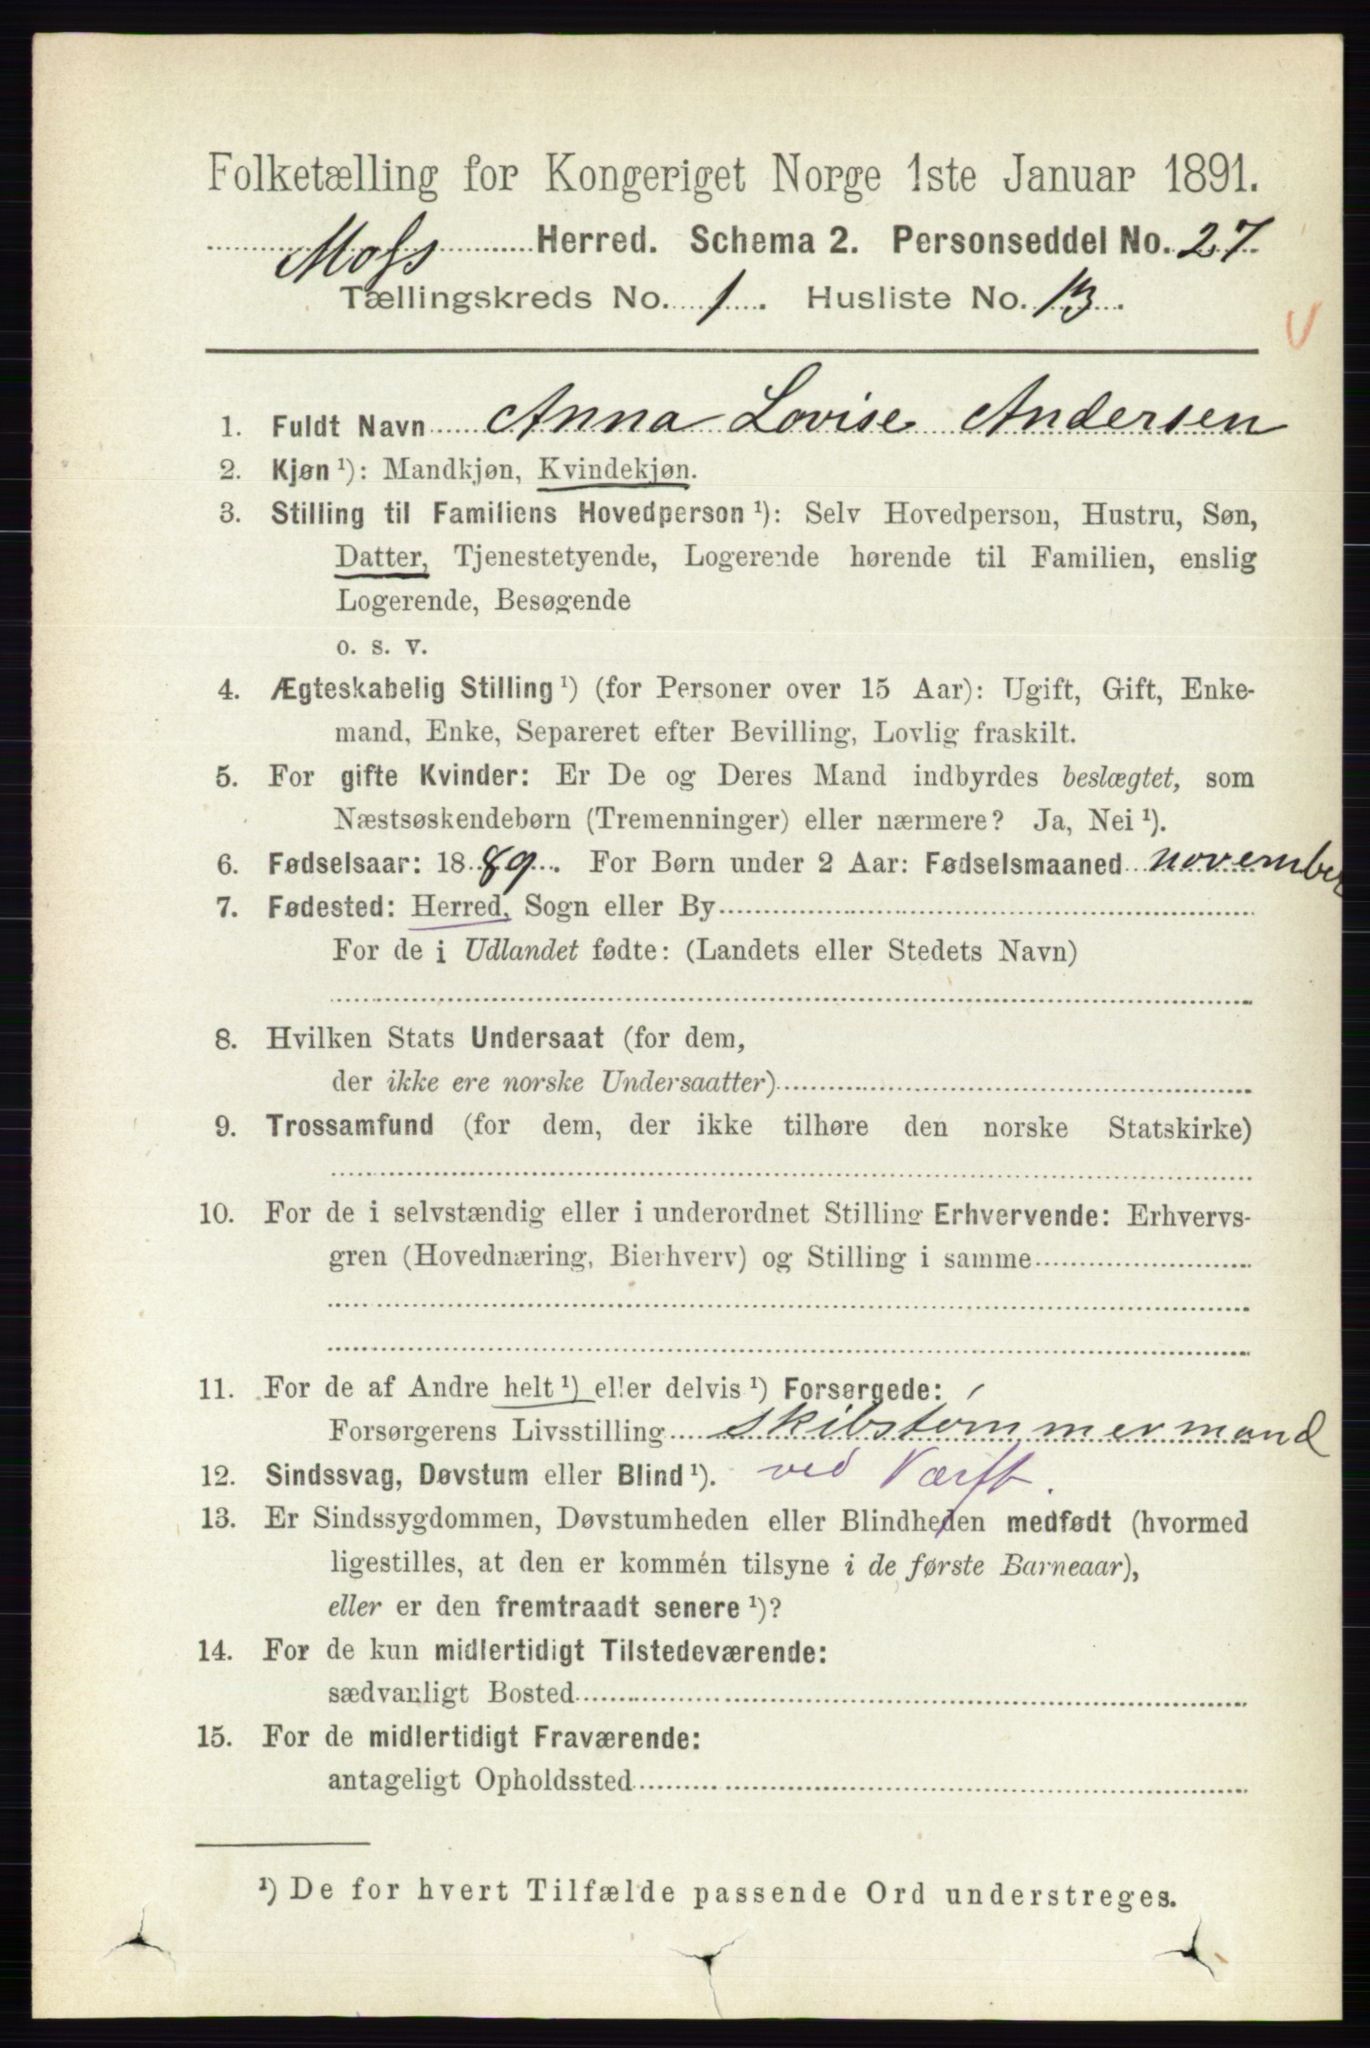 Folketælling for Kongeriget Norge 1ste Januar 1891.
Moss Herred. Schema 2. Personseddel No. 27
Tællingskreds No. 1. Husliste No. 13.
1. Fuldt Navn Anna Lovise Andersen
2. Kjøn ¹): Mandkjøn, Kvindekjøn.
3. Stilling til Familiens Hovedperson ¹): Selv Hovedperson, Hustru, Søn,
Datter, Tjenestetyende, Logerende hørende til Familien, enslig
Logerende, Besøgende
o. s. v.
4. Ægteskabelig Stilling ¹) (for Personer over 15 Aar): Ugift, Gift, Enke-
mand, Enke, Separeret efter Bevilling, Lovlig fraskilt.
5. For gifte Kvinder: Er De og Deres Mand indbyrdes beslægtet, som
Næstsøskendebørn (Tremenninger) eller nærmere? Ja, Nei ¹).
6. Fødselsaar: 1889. For Børn under 2 Aar: Fødselsmaaned november
7. Fødested: Herred, Sogn eller By
For de i Udlandet fødte: (Landets eller Stedets Navn)
8. Hvilken Stats Undersaat (for dem,
der ikke ere norske Undersaatter)
9. Trossamfund (for dem, der ikke tilhøre den norske Statskirke)
10. For de i selvstændig eller i underordnet Stilling Erhvervende: Erhvervs-
gren (Hovednæring, Bierhverv) og Stilling i samme
11. For de af Andre helt ¹) eller delvis ¹) Forsørgede:
Forsørgerens Livsstilling skibstømmermand
12. Sindssvag, Døvstum eller Blind ¹). ved Værft.
13. Er Sindssygdommen, Døvstumheden eller Blindheden medfødt (hvormed
ligestilles, at den er kommén tilsyne i de første Barneaar),
eller er den fremtraadt senere ¹)?
14. For de kun midlertidigt Tilstedeværende:
sædvanligt Bosted
15. For de midlertidigt Fraværende:
antageligt Opholdssted
¹) De for hvert Tilfælde passende Ord understreges.